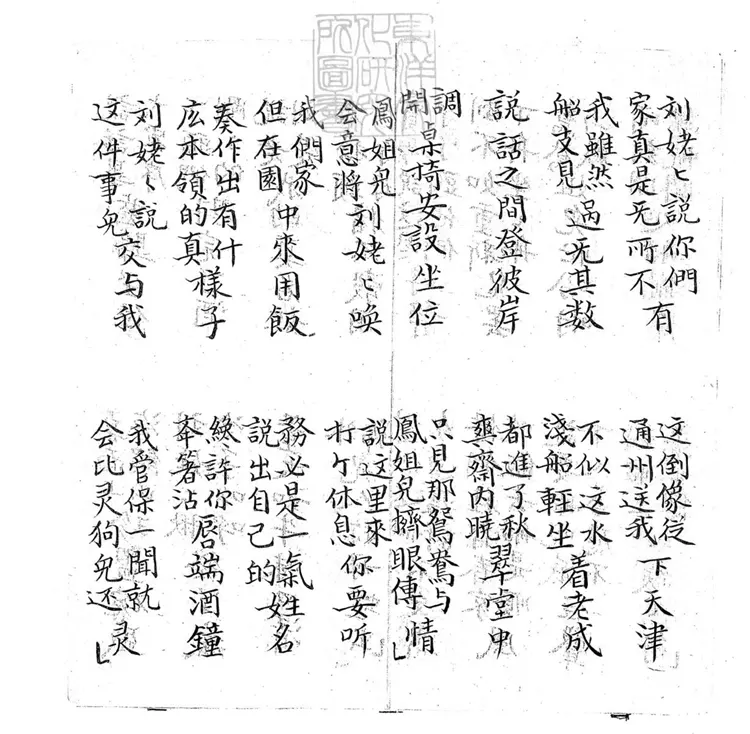 東洋文
化研究
所圖書
刘姥〻説你們家真是无所不有
这倒像從通州送我下天津
我雖然船支見過无其数
不似这水淺船輕坐着老成
説話之間登彼岸
都進了秋爽齋內曉翠堂中
調開桌椅安設坐位
只見那鴛鴦与鳳姐兒擠眼傳情
鳳姐兒会意將刘姥〻喚
説这里來打个休息你要听
我們家但在園中來用飯
務必是一氣説出自己的姓名
奏作出有什広本領的真樣子
終許你夲箸沾唇端酒鐘
刘姥〻説这件事兒交与我
我管保一聞就会比灵狗兒还灵